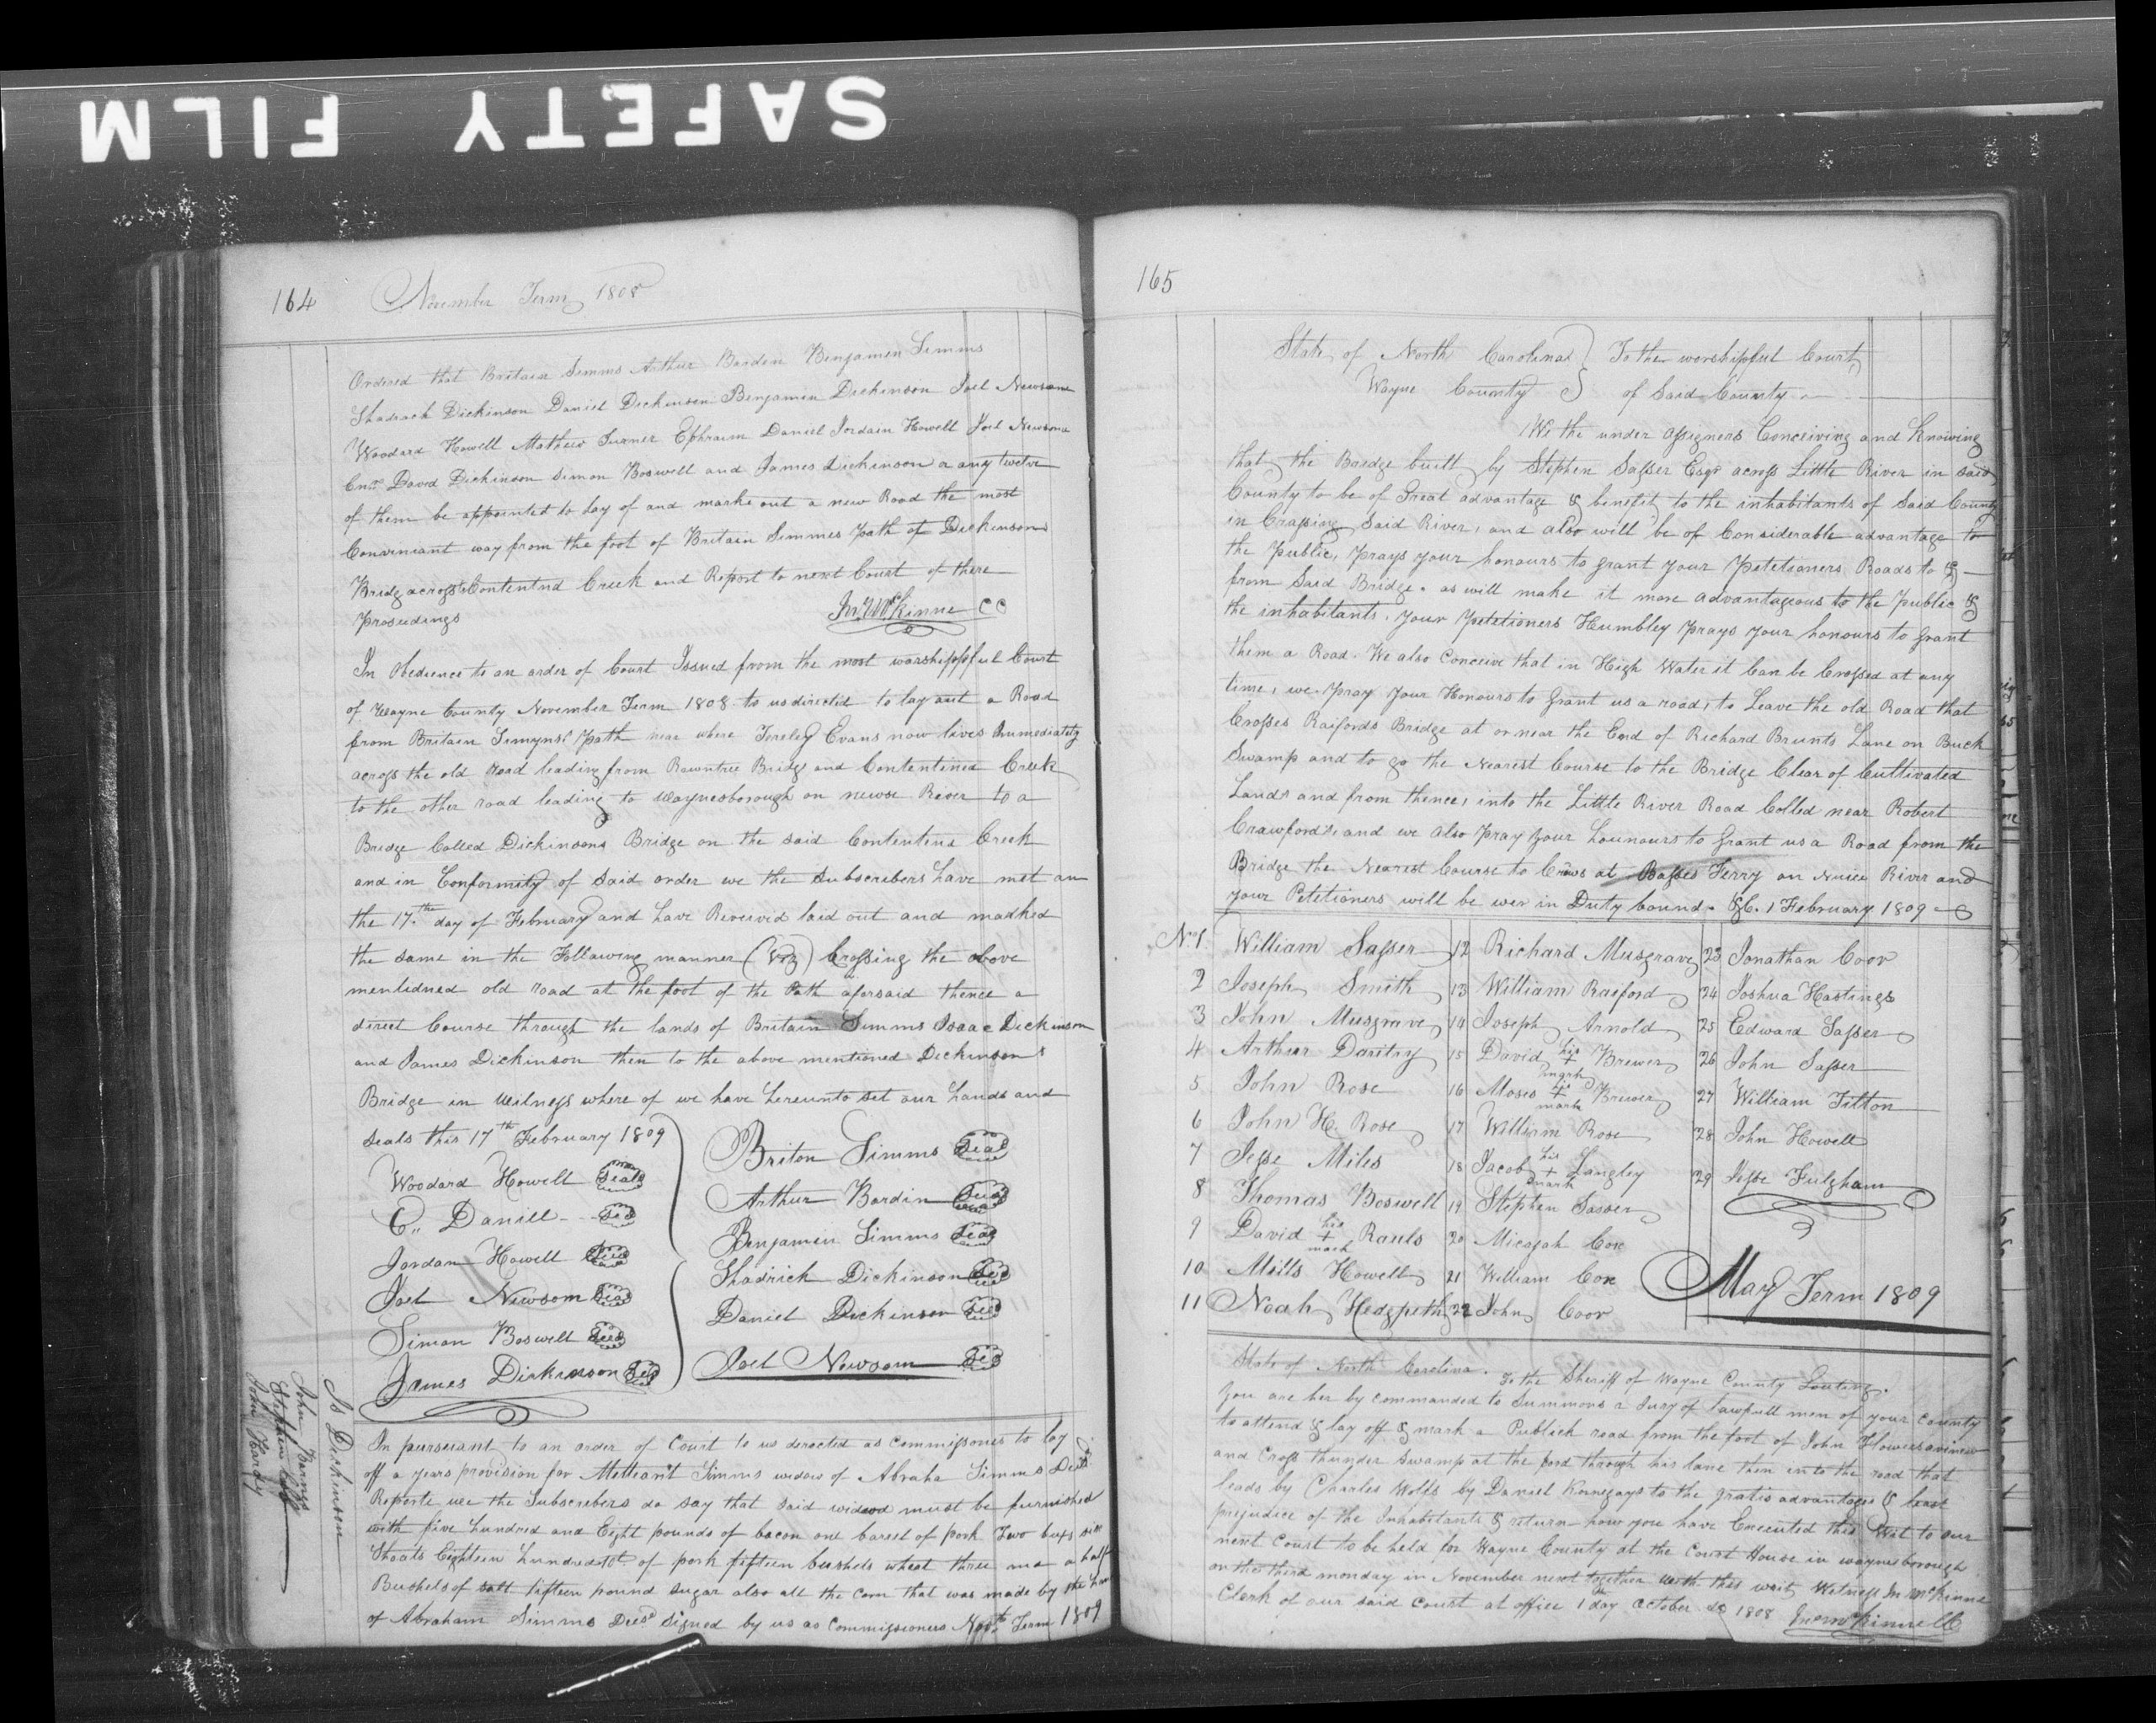 SAFETY FILM
164 November Term 1808
Ordered that Britain Simms Arthur Bardin Benjamen Simms
Shadrack Dickinson Daniel Dickinson Benjamen Dickinson Joel Newsome
Woodard Howell Mathew Turner Ephraim Daniel Jordain Howell Joel Newsome
David Dickinson Simon Boswell and James Dickinson or any twelve
of them be appointed to Lay of and marke out a new Road the most
Convenient way from the foot of Britain Simmes Path to Dickinsons
Bridg across Contentna Creek and Report to next Court of there
Proseedings Jn. McKinne CC
In Obedience to an order of Court Issued from the most worshippful Court
of Wayne County November Term 1808 to us directed to lay out a Road
from Britain Simmns Path near where Evans now lives Immediately
across the old road leading from Rowntree Bridg and Contentnea Creek
to the other road leading to Waynesborough on neuse River to a
Bridge Called Dickinsons Bridge on the said Contentens Creek
and in Conformity of said order we the Subscribers have met on
the 17.th day of February and have Reveivd laid out and marked
the same in the Following manner (Viz) Crossing the above
mentidned old road at the foot of the Path aforsaid thence a
direct Course through the lands of Britain Simms Isaac Dickinson
and James Dickinson then to the above mentioned Dickinsons
Bridge in Witness where of we have hereunto set our hands and
Seals this 17th February 1809
Woodard Howell Seal
E,, Daniell Seal
Jordan Howell Seal
Joel Newsom Seal
Simon Boswell Seal
James Dickinson Seal
Briton Simms Seal
Arthur Bardin Seal
Benjamen Simms Seal
Shadrick Dickinson Seal
Daniel Dickinson Seal
Joel Newsom Seal
In pursuant to an order of Court to us derected as Commissoners to lay
off a years provision for Simms widow of Abraha Simms Decd
Reporte we the Subscribers do say that said widow must be furnished
with five hundred and Eight pounds of bacon one barrel of pork Two six
Shoats Eighteen hundred of pork fifteen bushels wheat three a half
Bushels of salt fifteen pound sugar also all the Corn that was made by the
of Abraham Simms Decd Signed by us as Commissioners Novr Term 1809
Is Dickinson
John Barnes
Stephen Cobb
John Hardy
165
State of North Carolina } To the worshipful Court
Wayne County } of Said County
We the under assigners Conceiving and Knowing
that the Bridge built by Stephen Sasser Esqr across Little River in said
County to be of Great advantage & benefit to the inhabitants of Said County
in Crossing Said River, and also will be of Considerable advantage to
the Public, prays your honours to grant your Petetioners Roads to &
from Said Bridge. as will make it more advantageous to the Public &
the inhabitants. your petetioners Humbley prays your honours to grant
them a Road. We also Conceive that in High Water it Can be Crossed at any
time, we pray your Honours to Grant us a road, to Leave the old Road that
Crosses Raifords Bridge at or near the End of Richard Brunts Lane on Buck
Swamp and to go the Nearest Course to the Bridge Clear of Cultivated
Lands and from thence, into the Little River Road Colled near Robert
Crawfords, and we also pray your hounours to Grant us a Road from the
Bridge the Nearest Course to Cows at Basses Ferry on Nuice River and
your Petetioners will be wer in Duty bound. &C. 1 February 1809
No 1. William Sasser
2 Joseph Smith
3 John Musgrave
4 Arthur Dautry
5 John Rose
6 John H. Rose
7 Jesse Miles
8 Thomas Boswell
9 David his + mark Rauls
10 Mills Howell
11 Noah Hedgpeth
12 Richard Musgrave
13 William Raiford
14 Joseph Arnold
15 David his + mark Brewer
16 Moses his + mark Brewer
17 William Rose
18 Jacob his + mark Langley
19 Stephen Sasser
20 Micajah Cox
21 William Cox
22 John Coor
23 Jonathan Coor
24 Joshua Hastings
25 Edward Sasser
26 John Sasser
27 William Titton
28 John Howell
29 Jesse Fulgham
May Term 1809
State of North Carolina. To the Sheriff of Wayne County Greeting.
You are her by commanded to Summons a Jury of Lawfull men of your County
to attend & lay off & mark a Publick road from the foot of John Flowers avinew
and Cross thunder Swamp at the ford through his lane then into the road that
leads by Charles Wolfs by Daniel Kinnegays to the gratis advantages & least
prejudice of the Inhabitants & return how you have Executed this Writ to our
next Court to be held for Wayne County at the Court House in waynesborough
on the third monday in November next together with this writ, Witness Jn McKinne
Clerk of our said Court at office 1 day October 1808 Jno McKinne CC